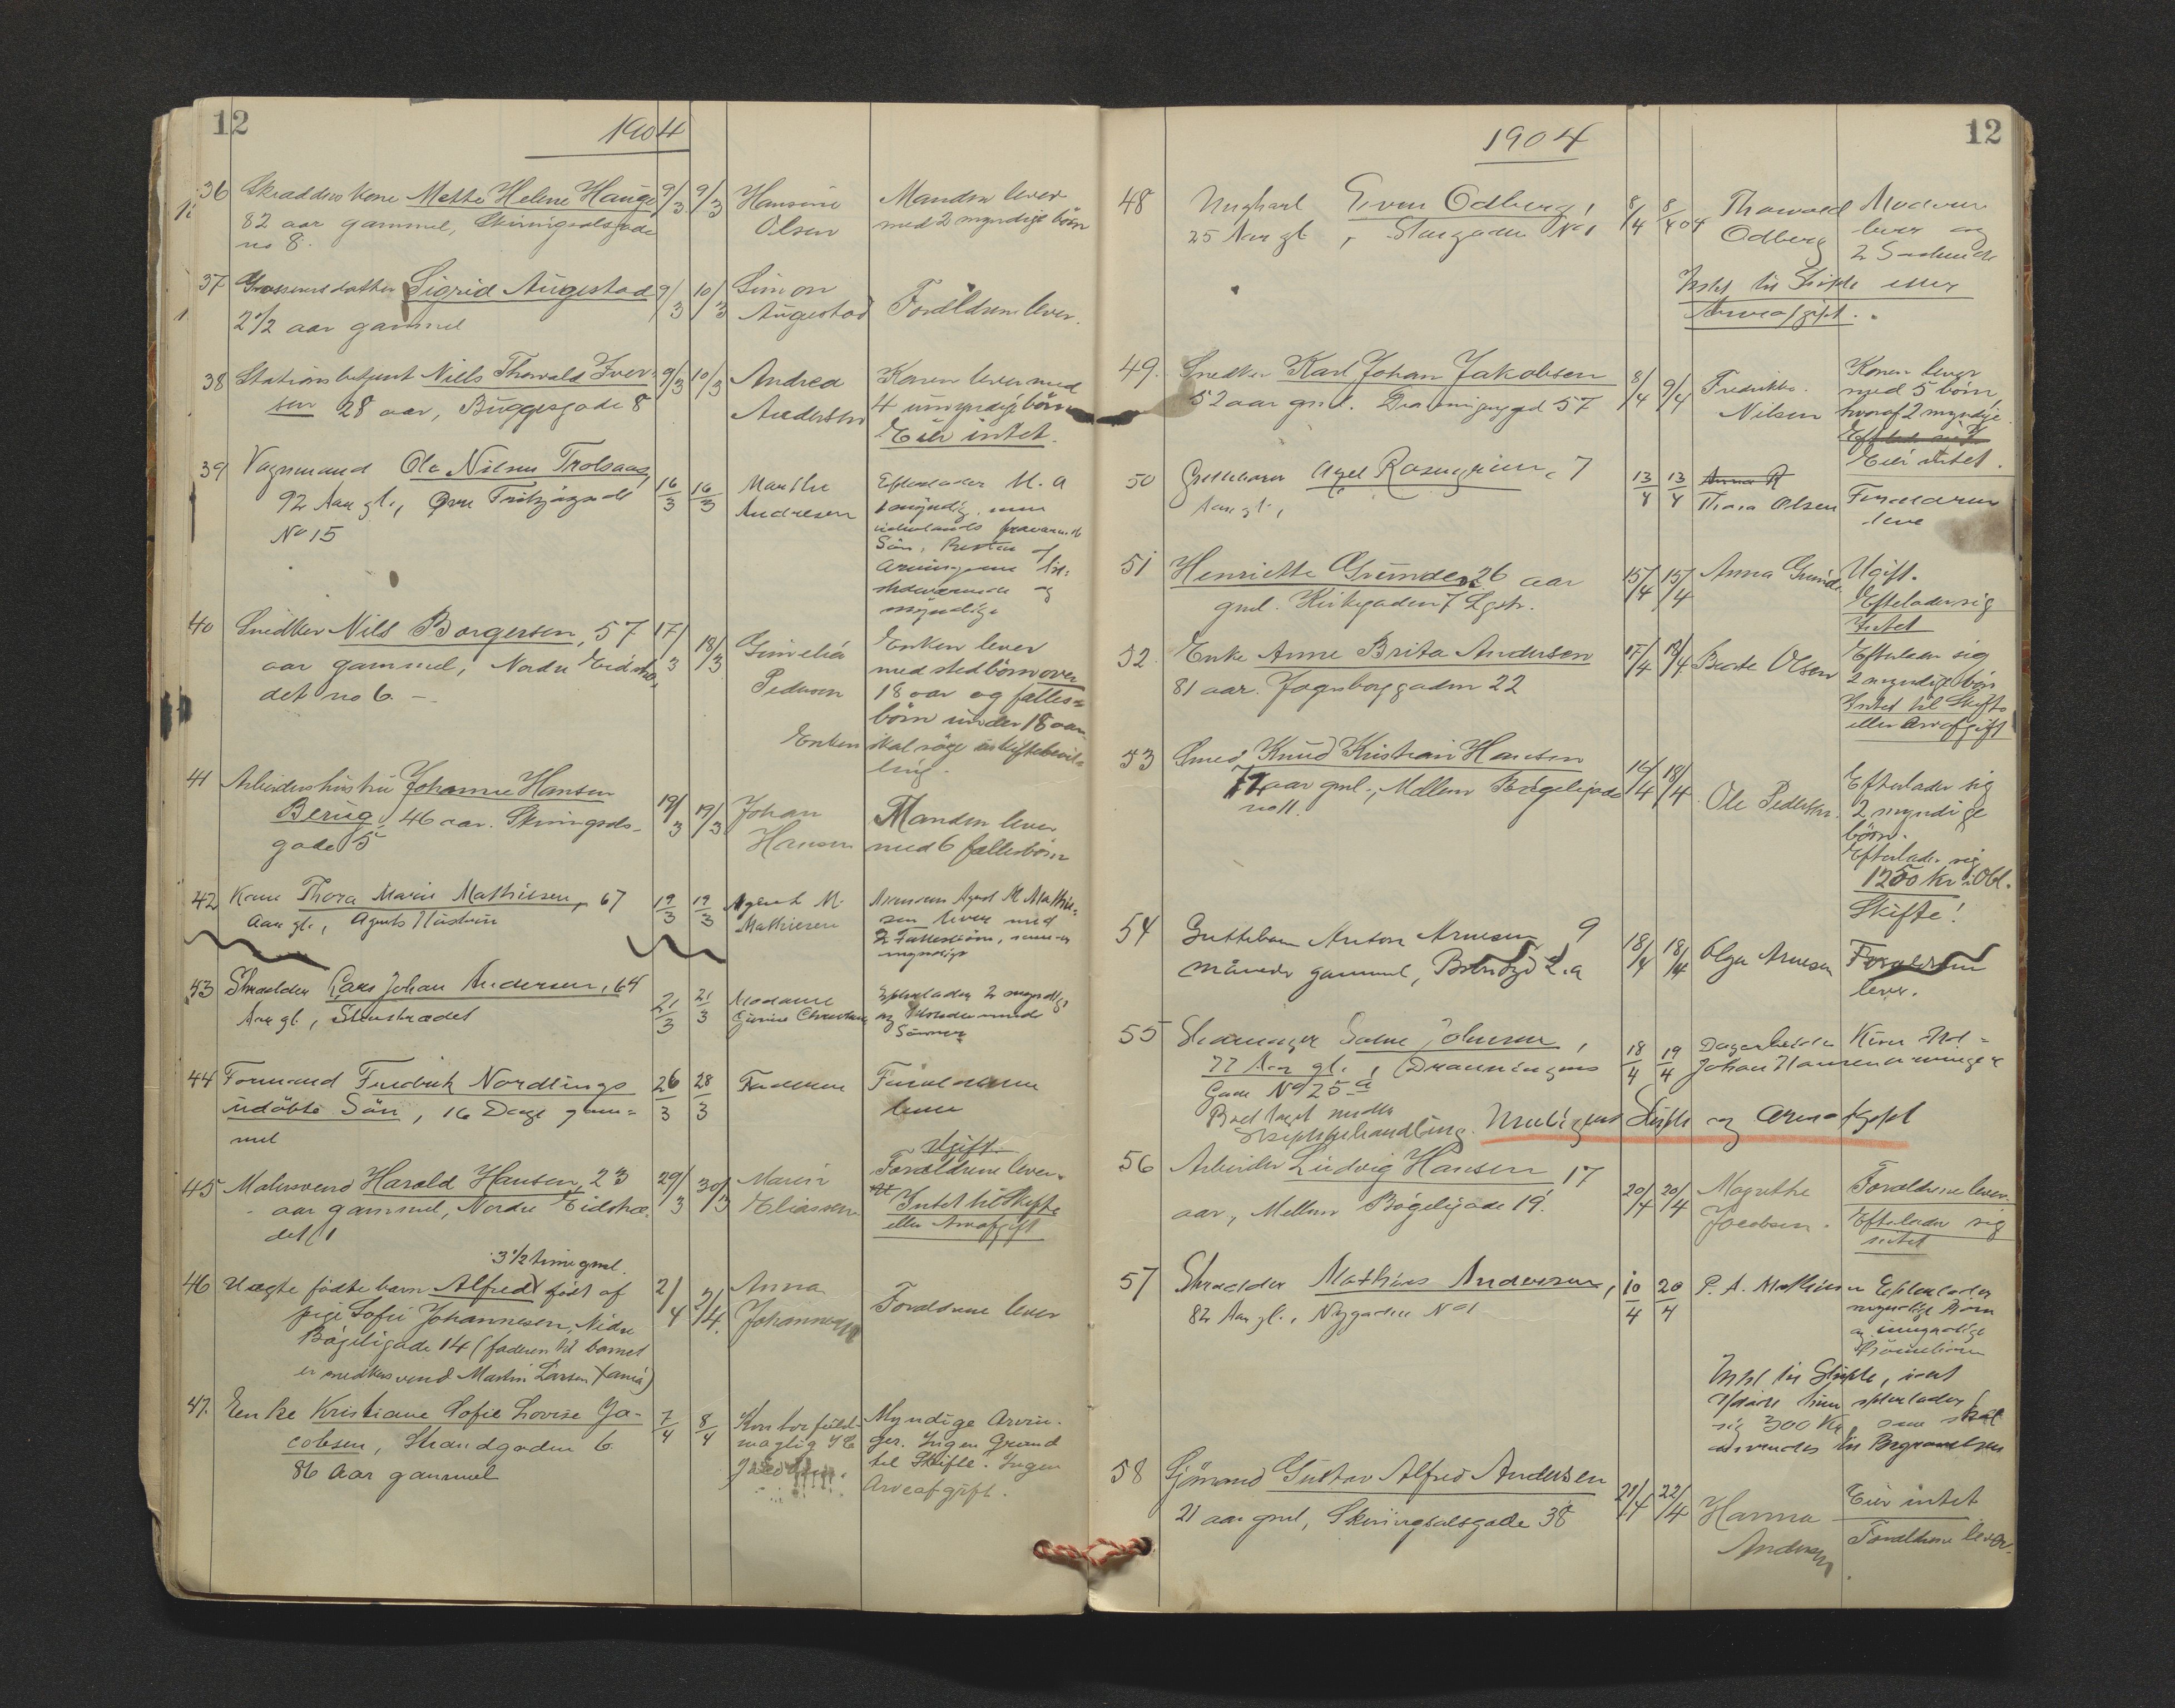 12
1904
36 Skrædders kone Mette Helene Hauge 9/3 9/3 Hansine Manden lever
82 aar gammel, Skiringsalsgade Olsen med 2 myndige børn
no 8.
37 Sigrid Augestad 9/3 10/3 Simon
2 1/2 aar gammel Augestad Forældrene lever.
38 Stationsbetjent Niels Thorvald Iver- 9/3 10/3 Andrea Konen lever med
sen 28 aar, Buggesgade 8 Andersen 4 umyndige børn
Eier intet.
39 Vognmand Ole Nilsen Trolsaas, 16/3 16/3 Marthe Efterlader bl. a
92 Aar gl., Øvre Fritzøegade Andresen 1 myndig, men
No 15 udenlands fraværende
Søn, Resten af
Arvingerne til-
stedeværende og
myndige
40 Snedker Nils Borgersen, 57 17/3 18/3 Enken lever
aar gammel, Nordre Eidstræ- Pedersen med stedbörn over
det no 6 - 18 aar og fælles-
börn under 18 aar.
Enken skal søge uskiftebevil-
ling.
41 Arbeiders hustru Johanne Hansen
Berug, 46 aar. Skiringsals- 19/3 19/3 Johan Manden lever
gade 5 Hansen med 6 fællesbörn
42 Kone Thora Marie Mathiesen, 67 19/3 19/3 Agent M. Agent M. Mathie-
Aar gl., Agents Hustru Mathiesen sen lever med
2 Fællesbörn, som er
myndige
43 Skrædder Lars Johan Andersen, 64 21/3 21/3 Madame Efterlader 2 myndige
Aar gl., Stenstrædet og tilstedeværende
Sønner
44 Formand Fredrik Nordlings 26/3 28/3 Faderen Forældrene
udöbte Sön, 16 Dage gam- lever
mel
Ugift.
45 Malersvend Harald Hansen, 23 29/3 30/3 Marie Forældrene lever.
aar gammel, Nordre Eidstræ- Eliassen Intet til Skifte
det 1 eller Arvafgift
3 1/2 time gml.
46 Uægte födte barn Alfred födt af 2/4 2/4 Anna
pige Sofie Johannesen, Nedre Johannesen Forældrene lever
Bögeligade 14 (faderen til barnet
er snedkersvend Martin Larsen)
47. Enke Kristiane Sofie Lovise Ja- 7/4 8/4 Kontorfuld- Myndige Arvin-
cobsen, Strandgaden 6 mægtig ger. Ingen Grund
86 Aar gammel Jacobsen. til Skifte. Ingen
Arveafgift.
12
1904
48 Ungkarl Even Odberg, 8/4 8/4 04 Thorvald Moderen
25 Aar gl., Storgaden No 1 Odberg lever og
2 Sødskende
Intet til Skifte eller
Arveafgift.
49. Snedker Karl Johan Jakobsen 8/4 9/4 Fredrikke Konen lever
52 aar gml. Dronningensgd 57 Nilsen med 5 börn,
hvoraf 2 myndige.
Eier intet.
50 Guttebarn Axel Rosengren, 7 13/4 13/4 Anna R
Aar gl., Thora Olsen Forældrene
leve
51 Henriette Grunder 26 aar 15/4 15/4 Anna Grunde Ugift.
gml. Kirkegaden 7 Lgst. Efterlader sig
Intet
52. Enke Anne Brita Andersen 17/4 18/4 Beate Olsen Efterlader sig
81 aar. Jegersborggaden 22 2 myndige börn
Intet til Skifte
eller Arvafgift
53 Smed Knud Kristian Hansen 16/4 18/4 Ole Pedersen. Efterlader sig
72 aar gml., Mellem Bögeligade 2 myndige
no 11. börn.
Efterlader sig
1250 kr i Obl.
Skifte!
54 Guttebarn Anton Arnesen 9 18/4 18/4 Olga Arnesen Forældrene
maaneder gammel, lever.
55 Skomager Johnsen, 18/4 19/4 Dagarbeider
77 Aar gl., Dronningens Johan Hansen
Gade No 25 a
Boet taget under
Skiftebehandling. Skifte og Arveafgift
56 Arbeider Ludvig Hansen 17 20/4 20/4 Magrethe Forældrene lever.
aar, Mellem Bögeligade 19. Jacobsen. Efterlader sig
intet
57 Skrædder Mathias Andersen, 10/4 20/4 P. A. Mathisen Efterlader
82 Aar gl., Nygaden No 1 myndige Börn
og umyndige
Börnebörn
Intet til Skifte, efterlader
sig 300 Kr, som skal
anvendes til Begravelsen
58 Sjömand Gustav Alfred Andersen 21/4 22/4 Hanna Eier intet
21 aar gml, Skiringsalsgade 38 Andersen Forældrene lever.